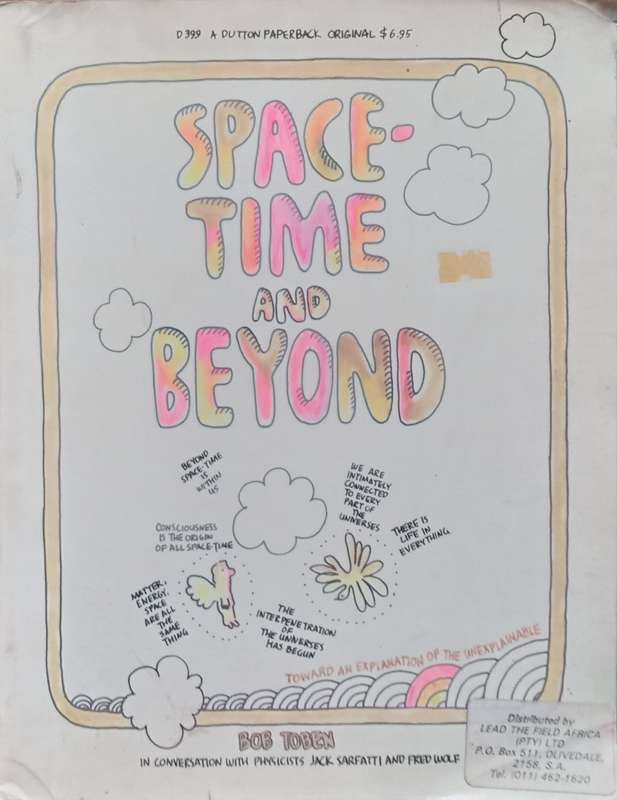 D399 A DUTTON PAPERBACK ORIGINAL $6.95
SPACE-
TIME
AND
BEYOND
BEYOND
SPACE-TIME
IS
WITHIN
US
WE ARE
INTIMATELY
CONNECTED
TO EVERY
PART OF
THE
UNIVERSES
THERE IS
LIFE IN
EVERYTHING
CONSCIOUSNESS
IS THE ORIGIN
OF ALL SPACE-TIME
MATTER,
ENERGY,
SPACE
ARE ALL
THE
SAME
THING
THE
INTERPENETRATION
OF
THE UNIVERSES
HAS BEGUN
TOWARD AN EXPLANATION OF THE UNEXPLAINABLE
BOB TOBEN
IN CONVERSATION WITH PHYSICISTS JACK SARFATTI AND FRED WOLF
Distributed by
LEAD THE FIELD AFRICA
(PTY) LTD
P.O. Box 511, OLIVEDALE,
2158, S.A.
Tel. (011) 462-1620